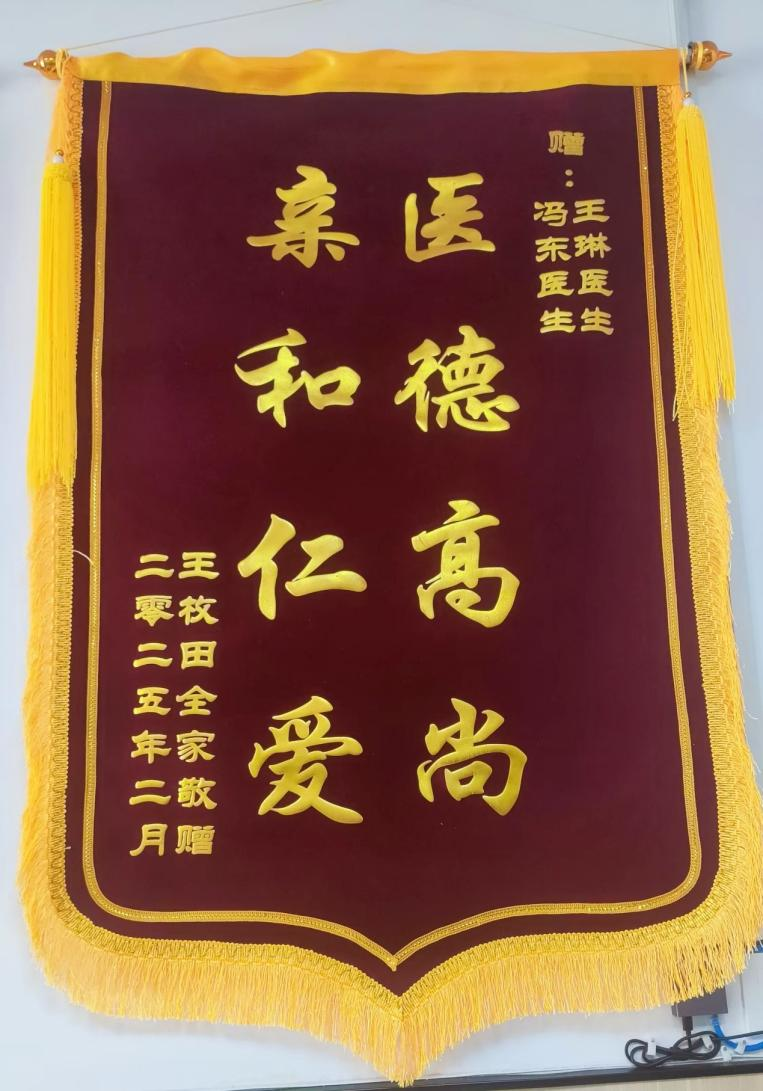 赠：
王琳医生
冯东医生
医德高尚
亲和仁爱
王枚田全家敬赠
二零二五年二月